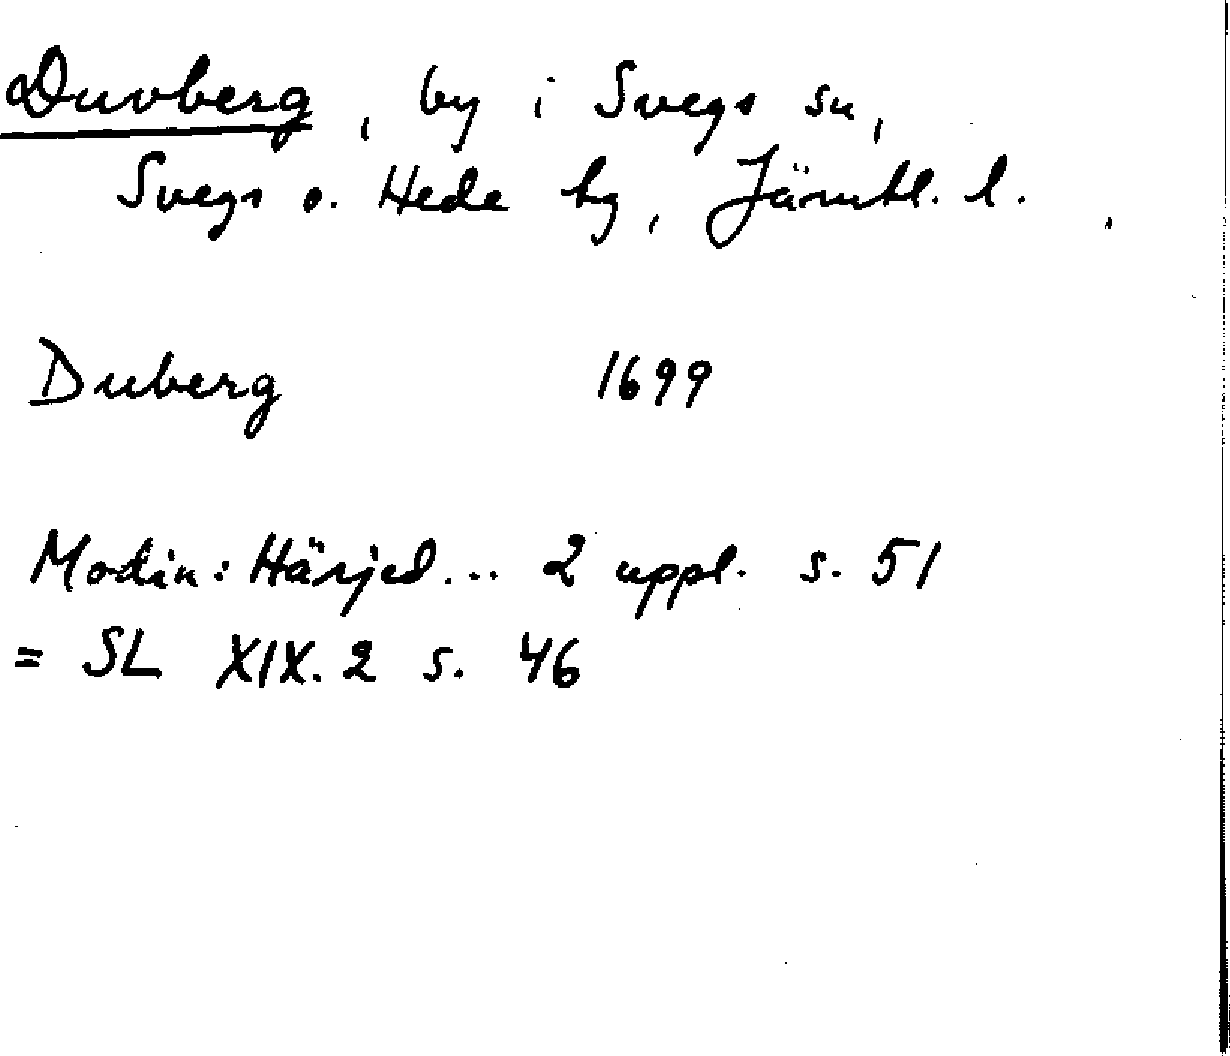 Duvberg, by i Svegs sn,
Svegs o. Hede tg, Jämtl. l.
Duberg 1699
Modin: Härjed... 2 uppl. s. 51
= SL XIX. 2 s. 46